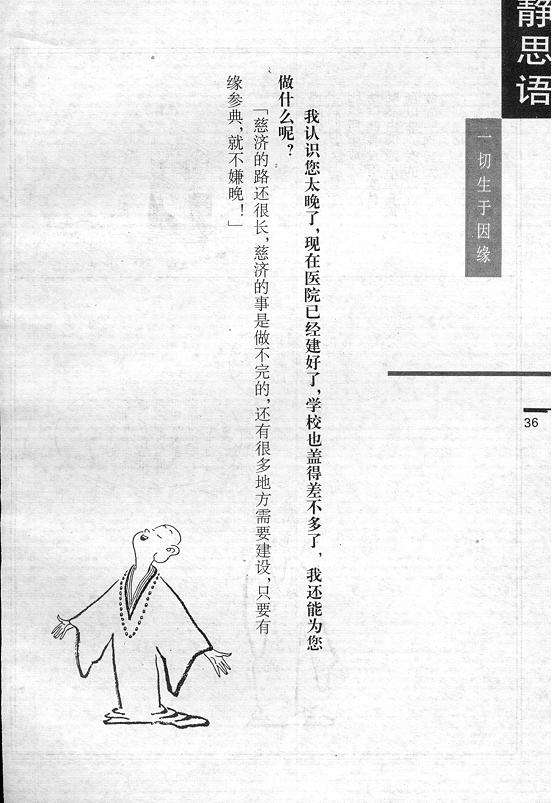 静思语
一切生于因缘
36
我认识您太晚了，现在医院已经建好了，学校也盖得差不多了，我还能为您
做什么呢？
「慈济的路还很长，慈济的事是做不完的，还有很多地方需要建设，只要有
缘参典，就不嫌晚！」